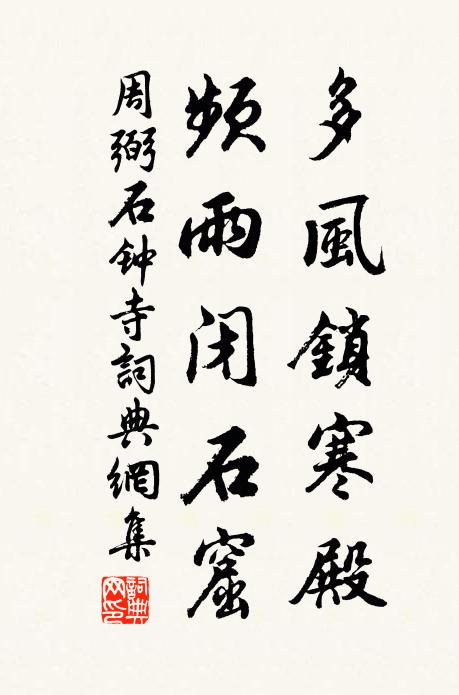 多風鎖寒殿
頻雨闭石窟
周弼石钟寺詞典網集
詞典网印